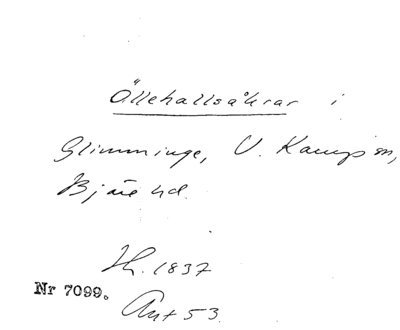 Öllehallsåkrar i
Glimminge, V. Karups sn,
Bjäre hd.
Sk. 1837
Nr 7099.
Ant 53.